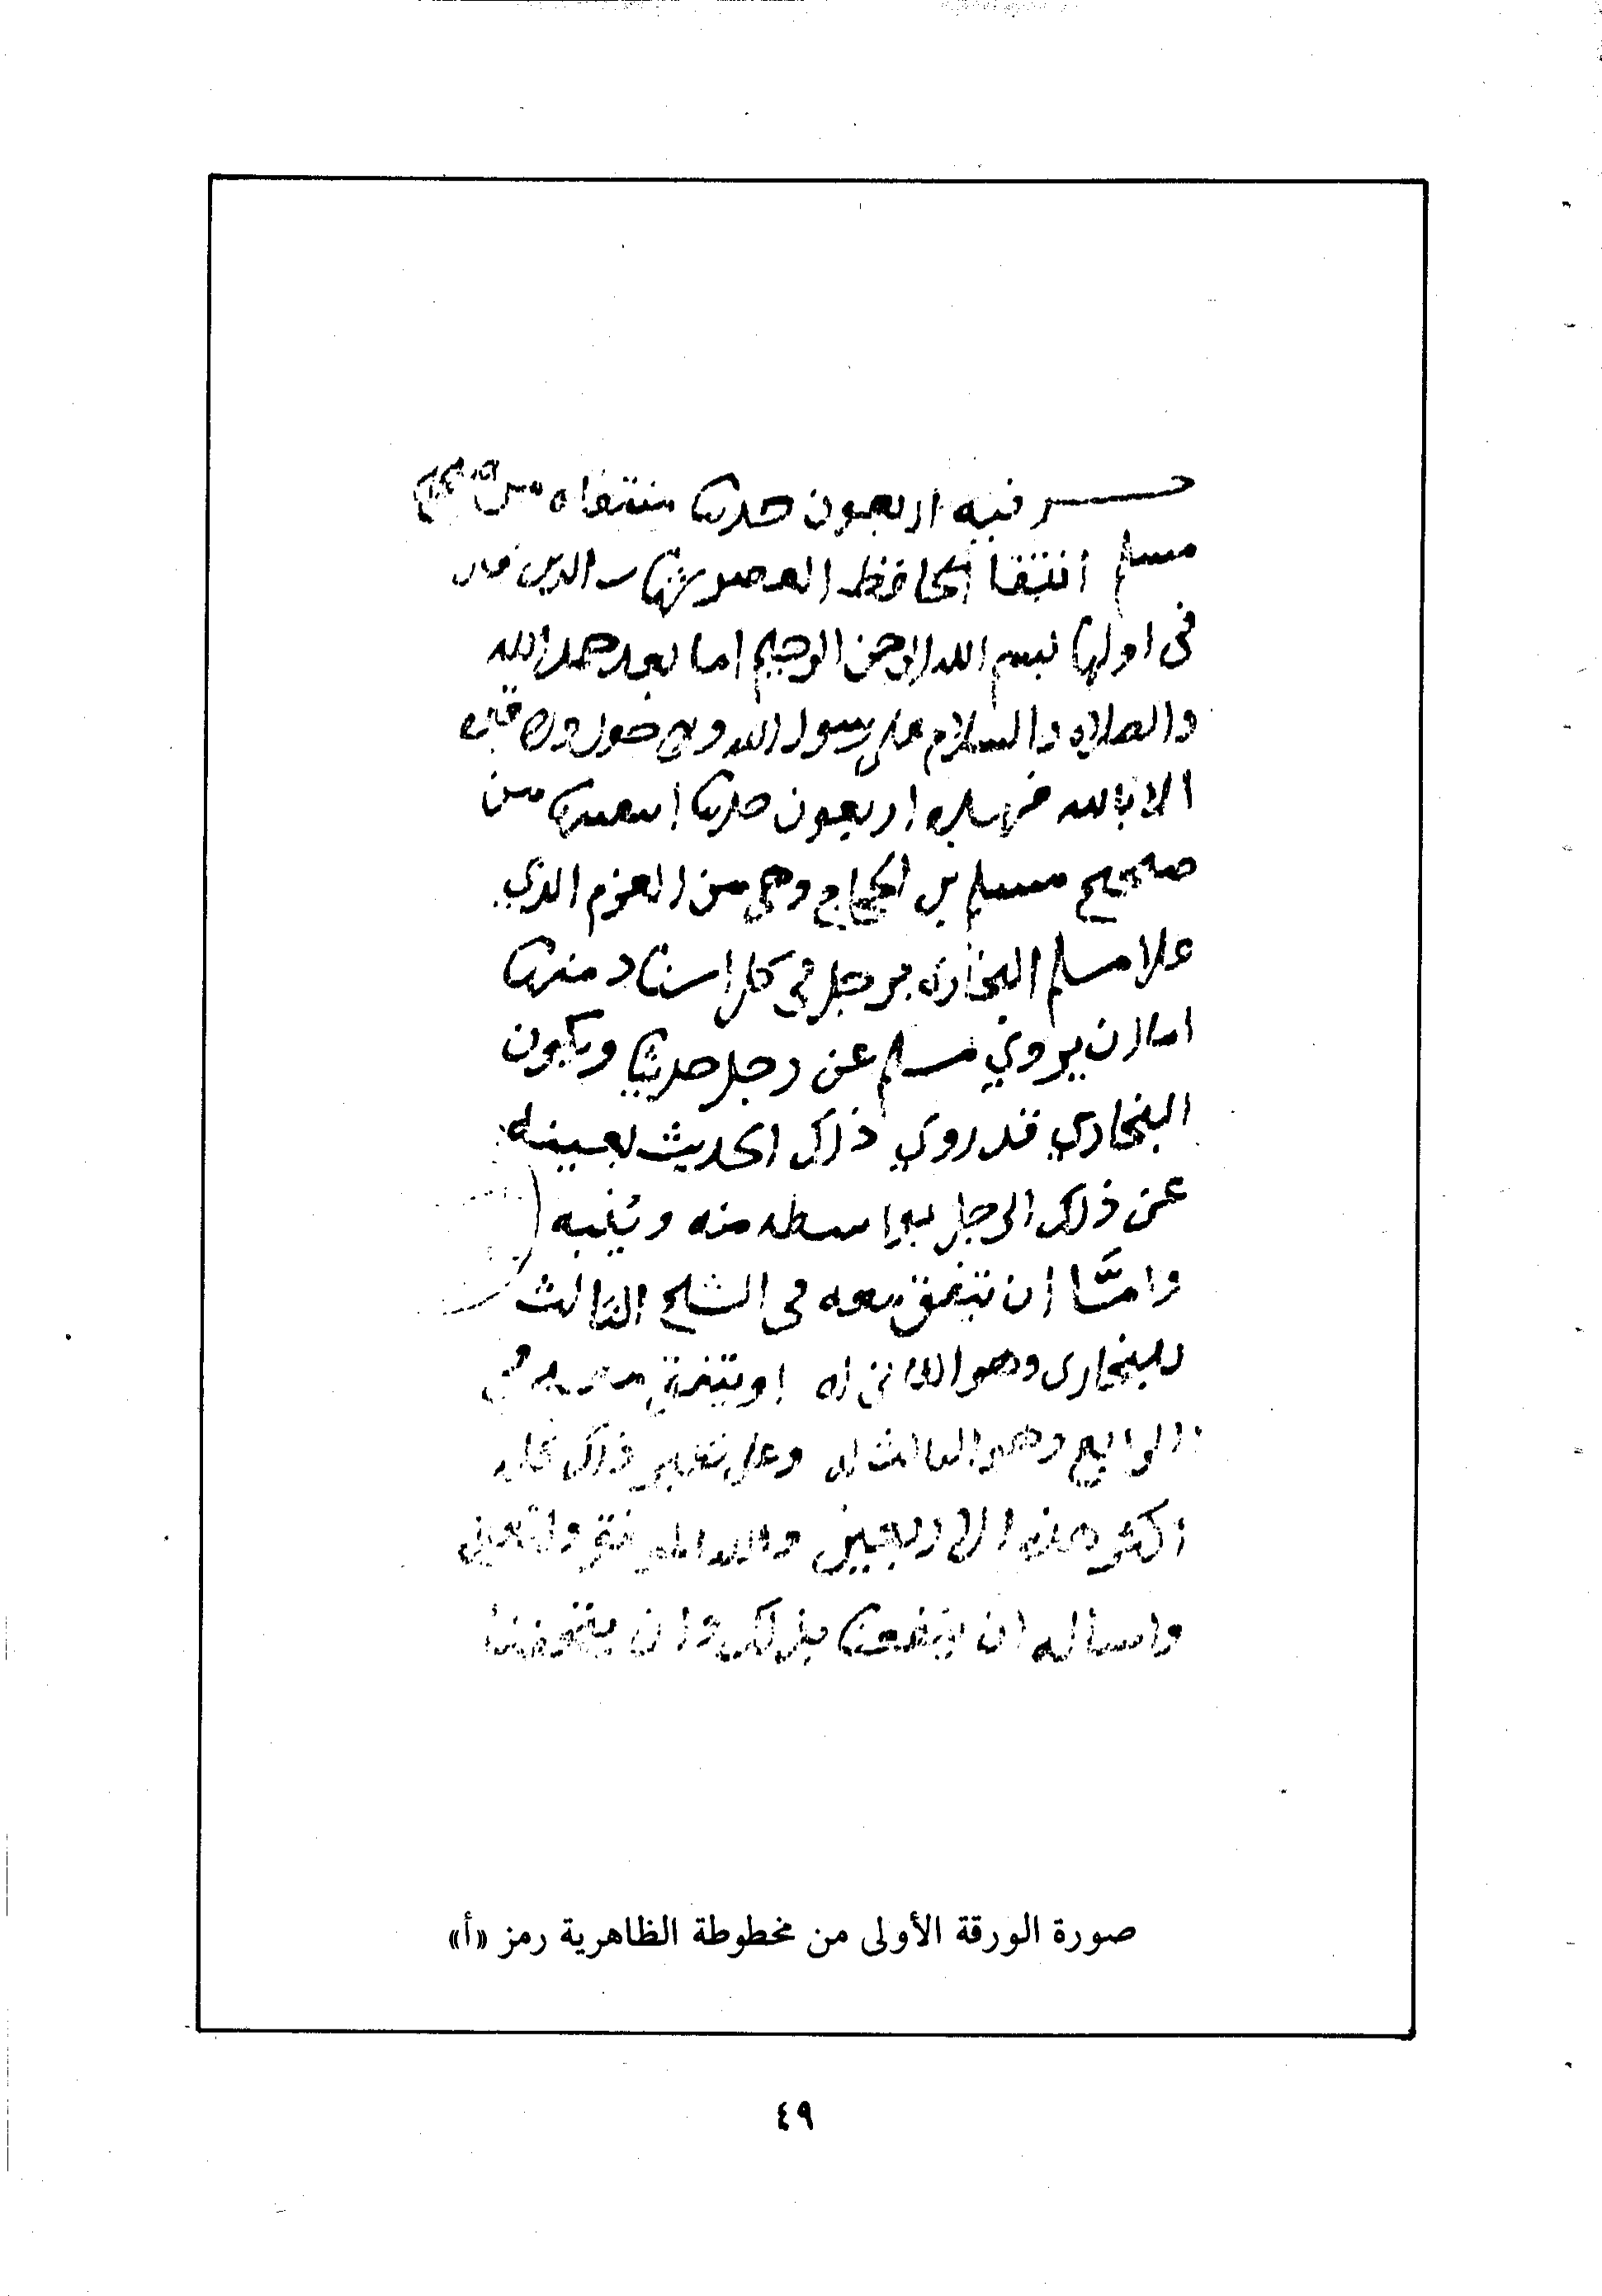 فيه اربعون حديثا منتقاه من صحيح
مسلم انتقا الحافظ العصر شهاب الدين قال
في اولها بسم الله الرحمن الرحيم اما بعد حمد الله
والصلاه والسلام على رسول الله ولا حول ولا قوه
الا بالله فهذه اربعون حديثا انتقيتها من
صحيح مسلم بن الحجاج وهي من النوع الذي
علا مسلم البخاري برجل في كل اسناد منها
اما ان يروي مسلم عن رجل حديثا ويكون
البخاري قد روي ذلك الحديث بعينه
عن ذلك الرجل بواسطه منه وبينه
وامَّا ان تتفق معه في الشيخ الثالث
للبخاري وهو الثاني له او يتفق معه في
الرابع وهو الثالث له وعلى ذلك
اكثر هذه الاربعين والله الموفق والمعين
واساله ان ينفعنا بذلك وان
صورة الورقة الأولى من مخطوطة الظاهرية رمز «أ»
٤٩